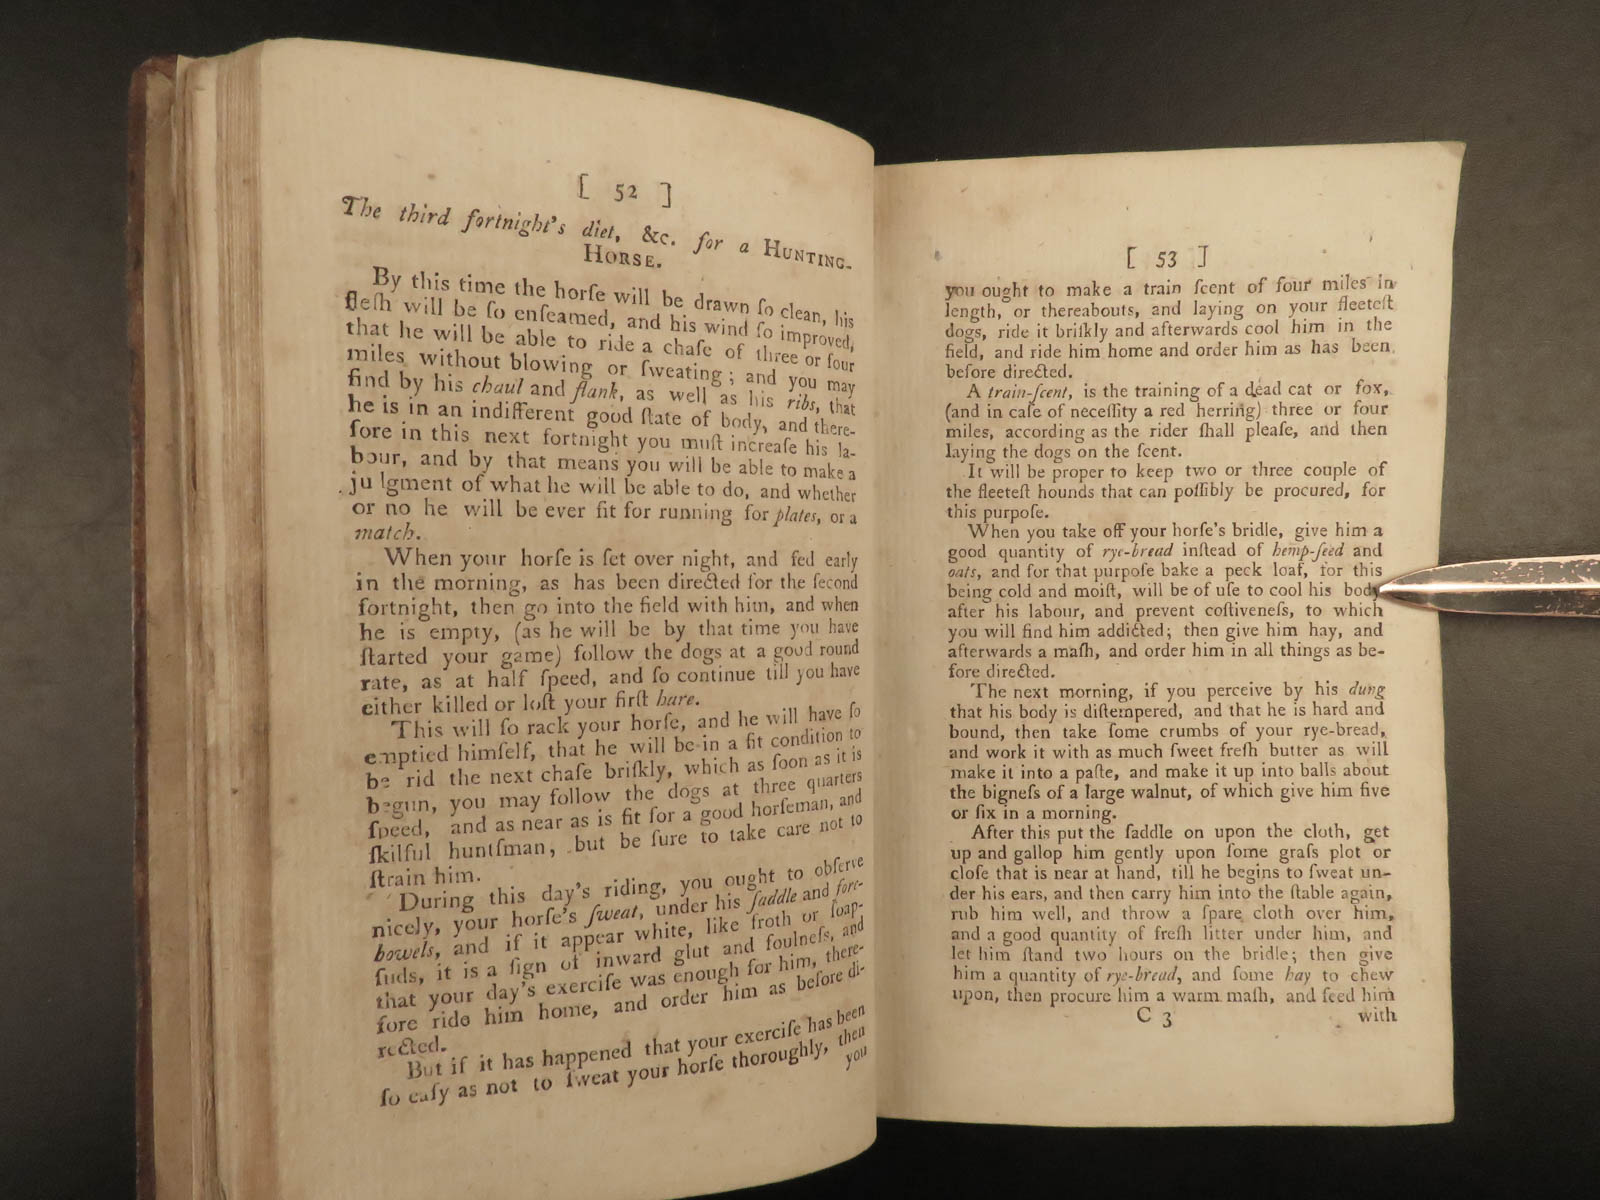 [ 52 ]
The third fortnight's diet, &c. for a HUNTING-
HORSE.
By this time the horſe will be drawn ſo clean, his
fleſh will be ſo enſeamed, and his wind ſo improved,
that he will be able to ride a chaſe of three or four
miles without blowing or ſweating; and you may
find by his chaul and flank, as well as his ribs, that
he is in an indifferent good ſtate of body, and there-
fore in this next fortnight you muſt increaſe his la-
bour, and by that means you will be able to make a
ju lgment of what he will be able to do, and whether
or no he will be ever fit for running for plates, or a
match.
When your horſe is ſet over night, and fed early
in the morning, as has been directed for the ſecond
fortnight, then go into the field with him, and when
he is empty, (as he will be by that time you have
ſtarted your game) follow the dogs at a good round
rate, as at half ſpeed, and ſo continue till you have
either killed or loſt your firſt hare.
This will ſo rack your horſe, and he will have ſo
emptied himſelf, that he will be in a fit condition to
be rid the next chaſe briſkly, which as ſoon as it is
begun, you may follow the dogs at three quarters
ſpeed, and as near as is fit for a good horſeman, and
ſkilful huntſman, but be ſure to take care not to
ſtrain him.
During this day's riding, you ought to obſerve
nicely, your horſe's ſweat, under his ſaddle and fore-
bowels, and if it appear white, like froth or ſoap-
ſuds, it is a ſign of inward glut and foulneſs, and
that your day's exerciſe was enough for him, there-
fore ride him home, and order him as before di-
rected.
But if it has happened that your exerciſe has been
ſo eaſy as not to ſweat your horſe thoroughly, then
you
[ 53 ]
you ought to make a train ſcent of four miles in
length, or thereabouts, and laying on your fleeteſt
dogs, ride it briſkly and afterwards cool him in the
field, and ride him home and order him as has been
before directed.
A train-ſcent, is the training of a dead cat or fox,
(and in caſe of neceſſity a red herring) three or four
miles, according as the rider ſhall pleaſe, and then
laying the dogs on the ſcent.
It will be proper to keep two or three couple of
the fleeteſt hounds that can poſſibly be procured, for
this purpoſe.
When you take off your horſe's bridle, give him a
good quantity of rye-bread inſtead of hemp-ſeed and
oats, and for that purpoſe bake a peck loaf, for this
being cold and moiſt, will be of uſe to cool his body
after his labour, and prevent coſtiveneſs, to which
you will find him addicted; then give him hay, and
afterwards a maſh, and order him in all things as be-
fore directed.
The next morning, if you perceive by his dung
that his body is diſtempered, and that he is hard and
bound, then take ſome crumbs of your rye-bread,
and work it with as much ſweet freſh butter as will
make it into a paſte, and make it up into balls about
the bigneſs of a large walnut, of which give him five
or ſix in a morning.
After this put the ſaddle on upon the cloth, get
up and gallop him gently upon ſome graſs plot or
cloſe that is near at hand, till he begins to ſweat un-
der his ears, and then carry him into the ſtable again,
rub him well, and throw a ſpare cloth over him,
and a good quantity of freſh litter under him, and
let him ſtand two hours on the bridle; then give
him a quantity of rye-bread, and ſome hay to chew
upon, then procure him a warm maſh, and feed him
C 3
with